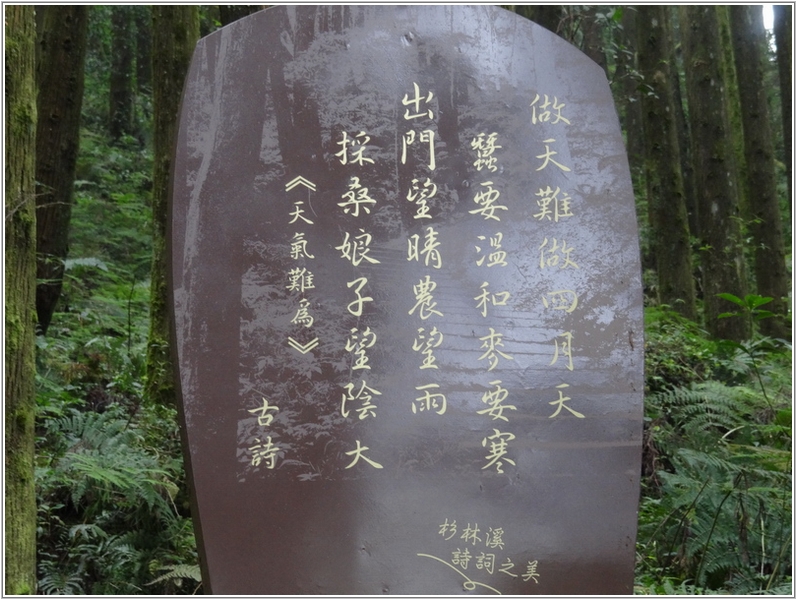 做天難做四月天
蠶要溫和麥要寒
出門望晴農望雨
採桑娘子望陰大
《天氣難為》
古詩
杉林溪
詩詞之美